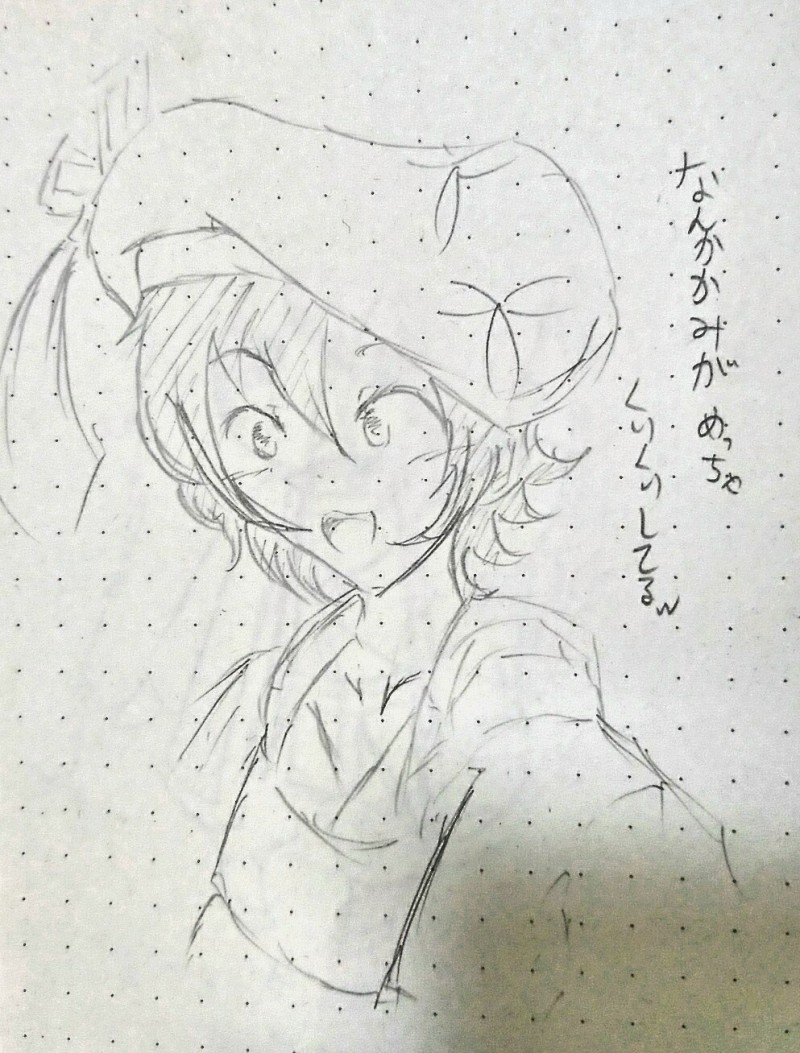 なんかかみがめっちゃ
くりくりしてるw